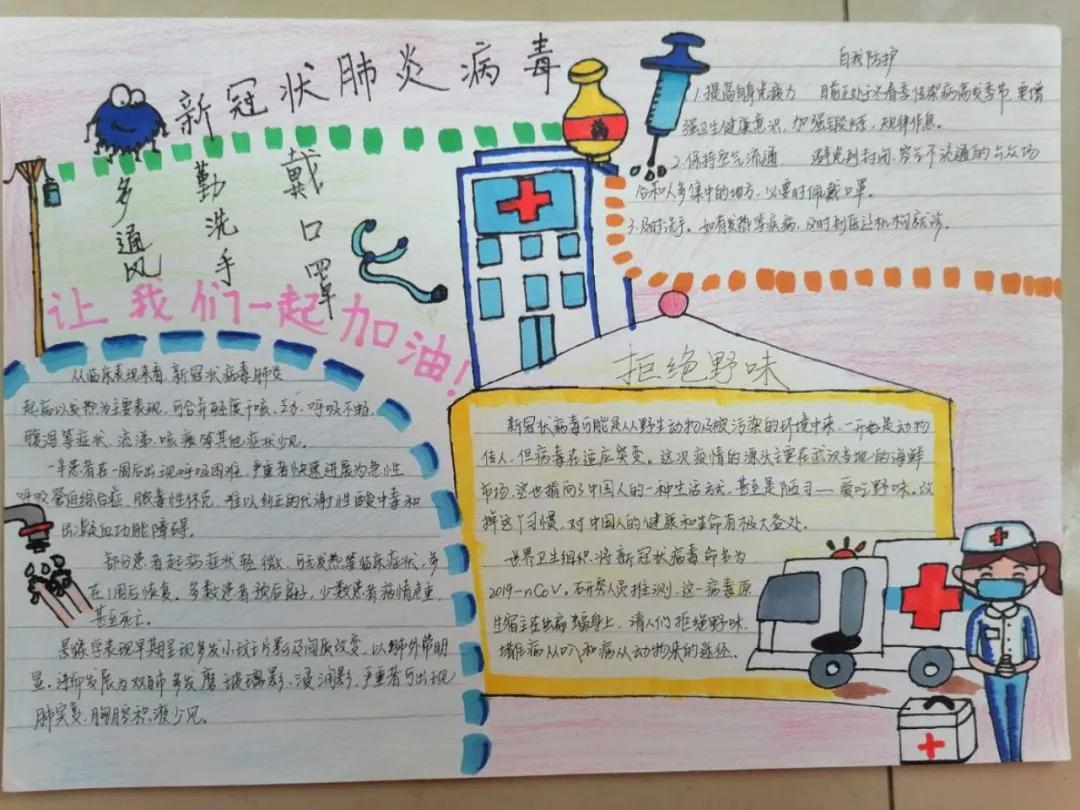 新冠状肺炎病毒
多通风
勤洗手
戴口罩
让我们一起加油!
药
自我防护
1.提高自身免疫力 目前正处于冬春季传染病高发季节,要增
强卫生健康意识,加强锻炼,规律作息。
2.保持空气流通 避免到封闭、空气不流通的公众场
合和人多集中的地方,必要时佩戴口罩。
3.及时洗手。如有发热等疾病,及时到医疗机构就诊。
从临床表现来看,新冠状病毒肺炎
起病以发热为主要表现,可合并轻度干咳、乏力、呼吸不畅、
腹泻等症状,流涕、咳痰等其他症状少见。
一半患者在一周后出现呼吸困难,严重者快速进展为急性
呼吸窘迫综合症、脓毒性休克、难以纠正的代谢性酸中毒和
出凝血功能障碍。
部分患者起病症状轻微,可无发热等临床症状,多
在1周后恢复。多数患者预后良好,少数患者病情危重,
甚至死亡。
表现早期呈现多发小斑片影及间质改变,以肺外带明
显,进而发展为双肺多发磨玻璃影、浸润影,严重者可出现
肺实变,胸腔积液少见。
拒绝野味
新冠状病毒可能是从野生动物及被污染的环境中来,一开始是动物
传人,但病毒在适应突变。这次疫情的源头主要在武汉当地的海鲜
市场,这也指向了中国人的一种生活方式,甚至是陋习——爱吃野味,改
掉这个习惯,对中国人的健康和生命有极大益处。
世界卫生组织将新冠状病毒命名为
2019-nCoV。研究人员推测,这一病毒原
生宿主在蝙蝠身上,请人们拒绝野味,
堵住病从口入和病从动物来的途径。